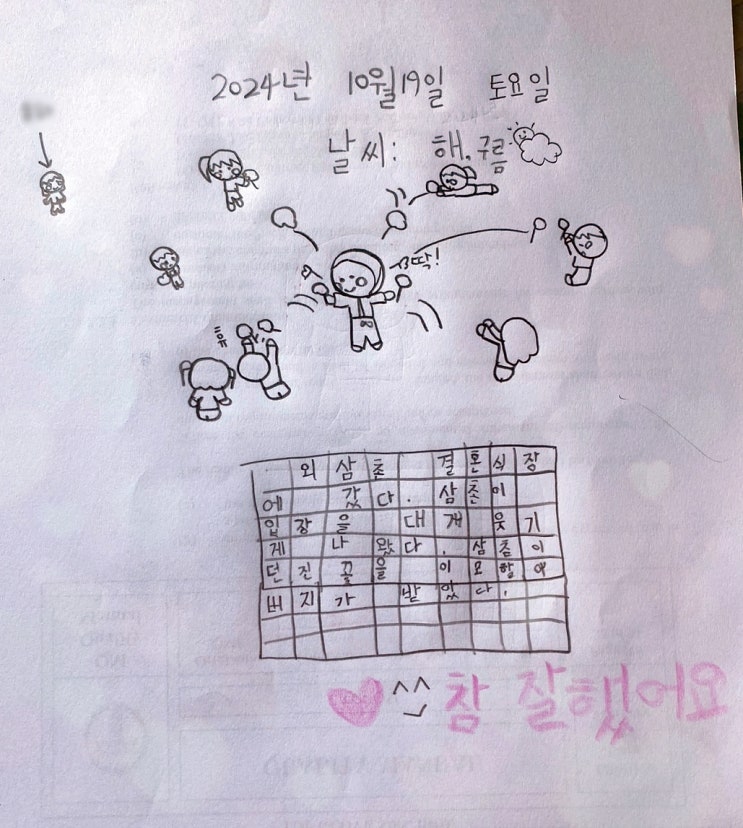 2024년 10월19일 토요일
날씨: 해.구름
딱!
외삼촌 결혼식장
에 갔다. 삼촌이
입장을 대개 웃기
게 나왔다. 삼촌이
던진 꽃을 이모할아
버지가 받았다.
^^ 참 잘했어요